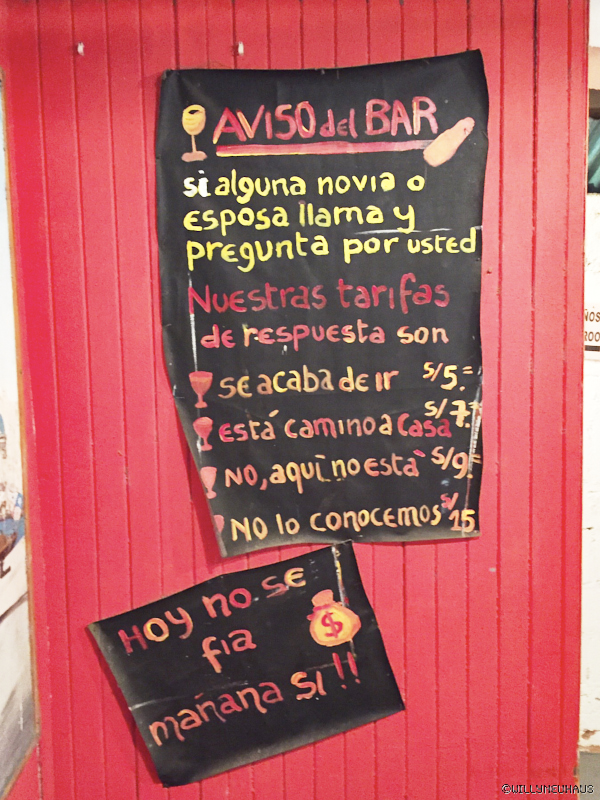 AVISO del BAR
si alguna novia o
esposa llama y
pregunta por usted
Nuestras tarifas
de respuesta son
SE acaba de ir S/5.=
Está camino a casa S/7.=
NO, aquí no está S/9.=
NO lo conocemos S/15
HOY no SE
fia
$
mañana SI!!
©WILLYNEUHAUS